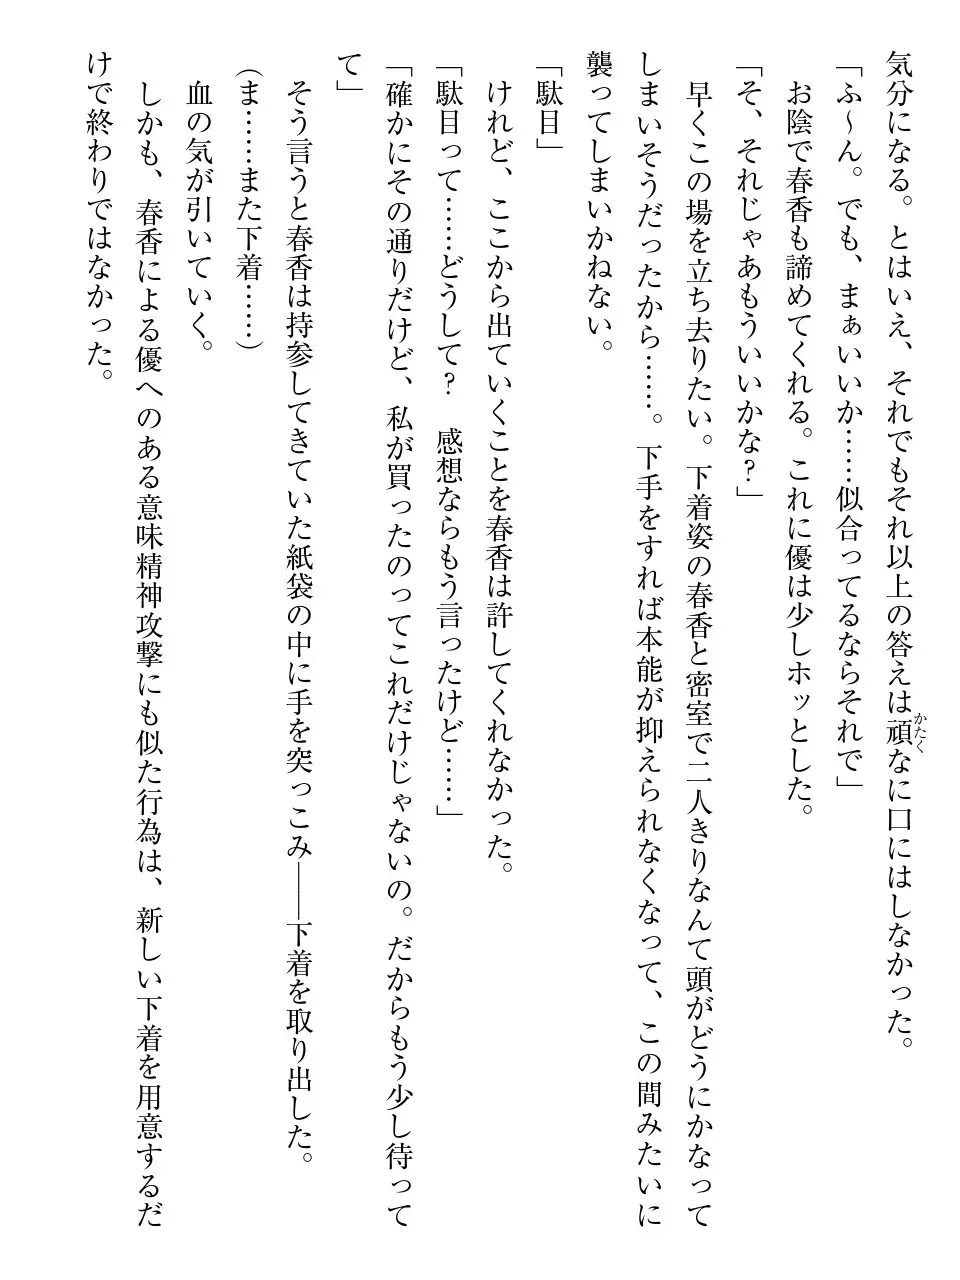 気分になる。とはいえ、それでもそれ以上の答えは頑なに口にはしなかった。
「ふ〜ん。でも、まぁいいか……似合ってるならそれで」
　お陰で春香も諦めてくれる。これに優は少しホッとした。
「そ、それじゃあもういいかな？」
　早くこの場を立ち去りたい。下着姿の春香と密室で二人きりなんて頭がどうにかなって
しまいそうだったから……。下手をすれば本能が抑えられなくなって、この間みたいに
襲ってしまいかねない。
「駄目」
　けれど、ここから出ていくことを春香は許してくれなかった。
「駄目って……どうして？　感想ならもう言ったけど……」
「確かにその通りだけど、私が買ったのってこれだけじゃないの。だからもう少し待って
て」
　そう言うと春香は持参してきていた紙袋の中に手を突っこみ――下着を取り出した。
（ま……また下着……）
　血の気が引いていく。
　しかも、春香による優へのある意味精神攻撃にも似た行為は、新しい下着を用意するだ
けで終わりではなかった。
かたく